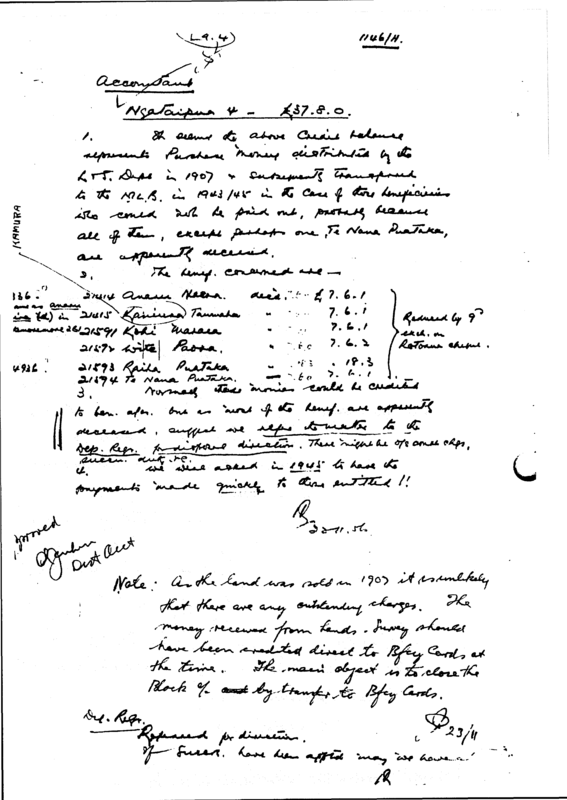 (L9.4)
1146/H.
Accountant
Ngataipua 4 - £37.8.0.
1. It seems the above Credit balance
represents Purchase money distributed by the
L & S. Dept in 1907 & subsequently transferred
to the M.L.B. in 1943/45 in the case of those beneficiaries
who could not be paid out, probably because
all of them, except perhaps one, Te Nana Puataka,
are apparently deceased.
2. The benef. concerned are —
KAMURA
136
21414 decd. £ 7.6.1
21415 Tamaka 7.6.1
21591 7.6.1
21592 Paora 7.6.2
4936
21593 Raiha Puataka 18.3
21594 Te Nana Puataka 7.6.1
Reduced by 9d
each on
Rotorua cheque.
3. Normally these monies could be credited
to ben. but as most of the benef. are apparently
deceased, suggest we refer the matter to the
Dep. Regr. for disposal direction. There might be o/s chgs,
succn. duty etc.
4. We were asked in 1945 to have the
payments made quickly to those entitled !!
Approved
Dist Acct
Note: As the land was sold in 1907 it is unlikely
that there are any outstanding charges. The
money received from Lands & Survey should
have been credited direct to Bfcy Cards at
the time. The main object is to close the
Block a/c by transfer to Bfcy Cards.
23/11
Dep. Regr.
Referred for direction.
If Succn. have been appted may we have a